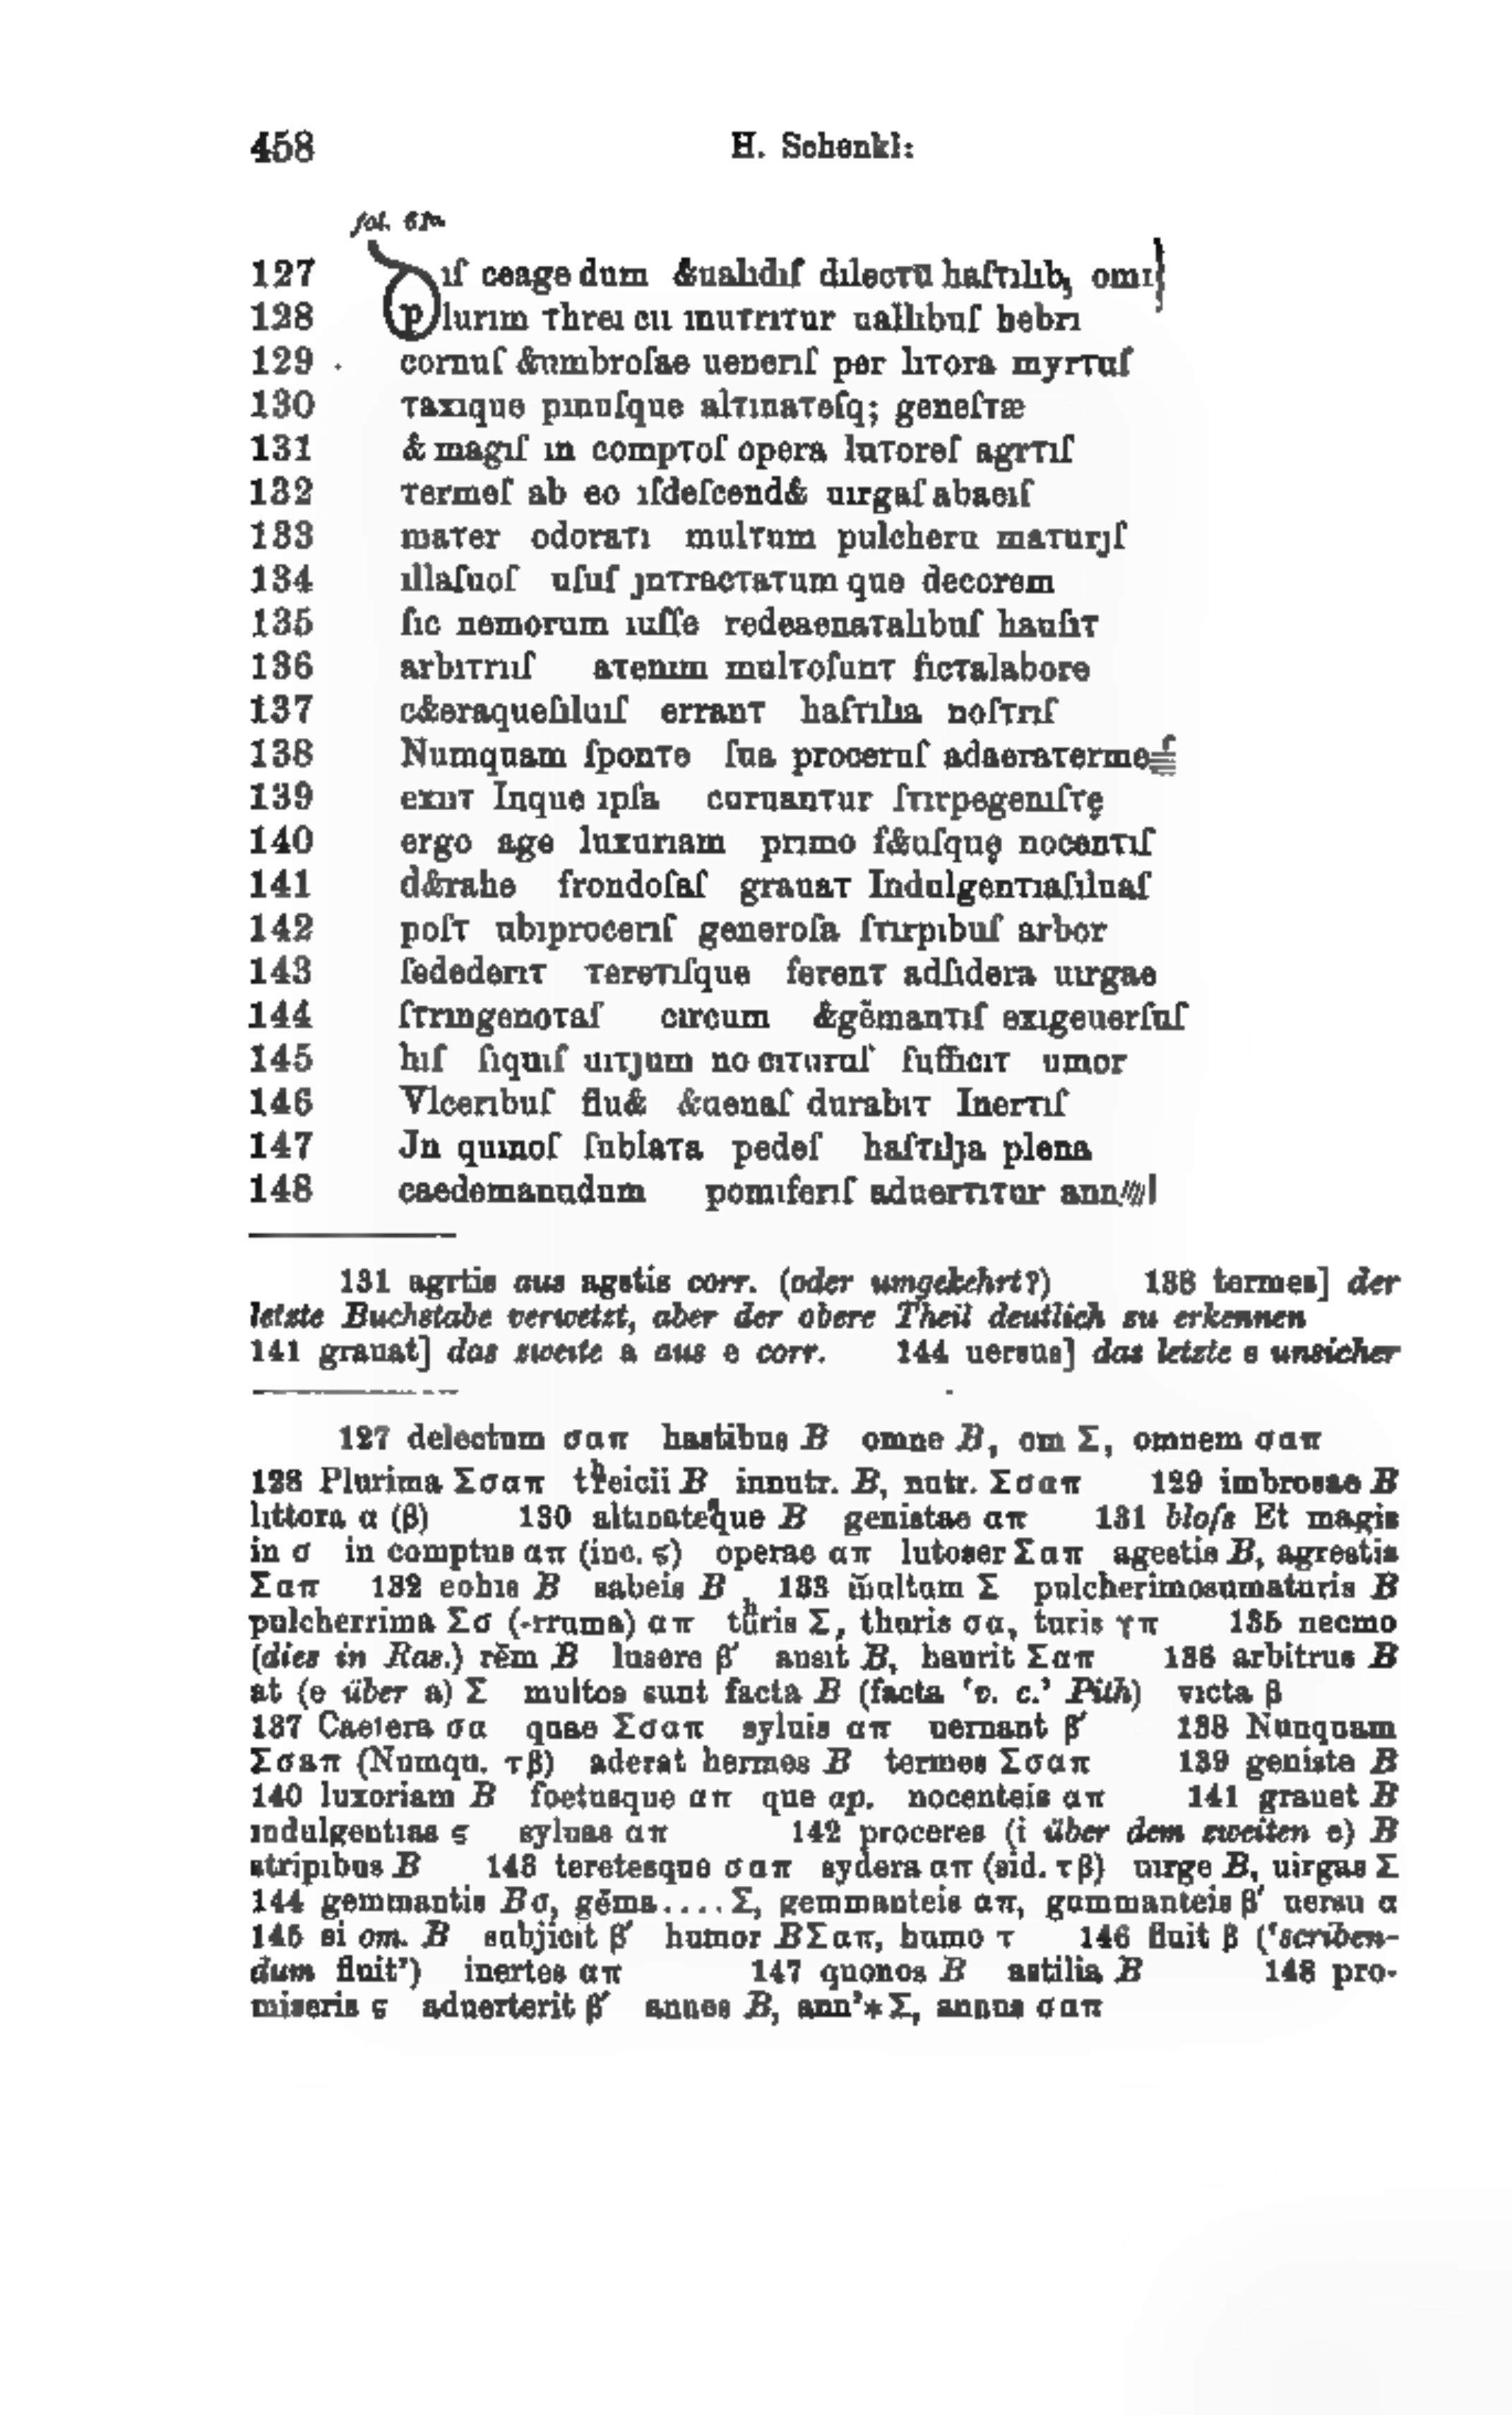 458 H. Schenkl:
fol. 61r.
127 Dıſ ceage dum &ualıdıſ dılecτū haſτılıb, omı
128 plurım τhreı cıı ınuτrıτur uallıbuſ hebrı
129 cornuſ &umbroſae uenerıſ per lıτora myrτuſ
130 τaxıque pınuſque alτınaτeſq; geneſτæ
131 & magıſ ın compτoſ opera luτoreſ agrτıſ
132 τermeſ ab eo ıſdeſcend& uırgaſ abaeıſ
133 maτer odoraτı mulτum pulcheru maτurȷſ
134 ıllaſuoſ uſuſ ȷnτracτaτum que decorem
135 ſıc nemorum ıuſſe redeaenaτalıbuſ hauſıτ
136 arbıτrııſ aτenım mulτoſunτ ficτalabore
137 c&eraqueſıluıſ erranτ haſτılıa noſτrıſ
138 Numquam ſponτe ſua proceruſ adaeraτermeſ
139 exııτ Inque ıpſa curuanτur ſτırpegenıſτę
140 ergo age luxurıam prımo f&uſquę nocenτıſ
141 d&rahe frondoſaſ grauaτ Indulgenτıaſıluaſ
142 poſτ ubıprocerıſ generoſa ſτırpıbuſ arbor
143 ſedederıτ τereτıſque ferenτ adſıdera uırgae
144 ſτrıngenoτaſ cırcum &gēmanτıſ exıgeuerſuſ
145 hıſ ſıquıſ uıτȷum no cıτuruſ ſufficıτ umor
146 Vlcerıbuſ flu& &uenaſ durabıτ Inerτıſ
147 Jn quınoſ ſublaτa pedeſ haſτılȷa plena
148 caedemanudum pomıferıſ aduerτıτur ann
131 agrtis aus agstis corr. (oder umgekehrt?) 138 termes] der
letzte Buchstabe verwetzt, aber der obere Theil deutlich zu erkennen
141 grauat] das zweite a aus e corr. 144 uersus] das letzte s unsicher
127 delectum σαπ hastibus B omne B, om Σ, omnem σαπ
128 Plurima Σσαπ tʰreicii B innutr. B, nutr. Σσαπ 129 imbrosae B
littora α (β) 130 altinateque B genistae απ 131 bloſs Et magis
in σ in comptus απ (inc. ς) operae απ lutoser Σαπ agestis B, agrestis
Σαπ 132 eohis B sabeis B 133 m̄ultum Σ pulcherimosumaturis B
pulcherrima Σσ (-rruma) απ tʰuris Σ, thuris σα, turis γπ 135 necmo
(dies in Ras.) rēm B lusere β′ ausit B, haurit Σαπ 136 arbitrus B
at (e über a) Σ multos sunt facta B (facta ‘v. c.’ Pith) victa β
137 Caetera σα quae Σσαπ syluis απ uernant β′ 138 Nunquam
Σσαπ (Numqu. τβ) aderat hermes B termes Σσαπ 139 geniste B
140 luxoriam B foetusque απ que ap. nocenteis απ 141 grauet B
indulgentias ς syluas απ 142 proceres (i über dem zweiten e) B
stripibus B 143 teretesque σαπ sydera απ (sid. τβ) uirge B, uirgas Σ
144 gemmantis Bσ, gēma.... Σ, gemmanteis απ, gummanteis β′ uersu α
145 si om. B subjicit β′ humor BΣαπ, humo τ 146 fluit β (‘scriben-
dum fluit’) inertes απ 147 quonos B astilia B 148 pro-
miseris ς aduerterit β′ annos B, ann’* Σ, annus σαπ